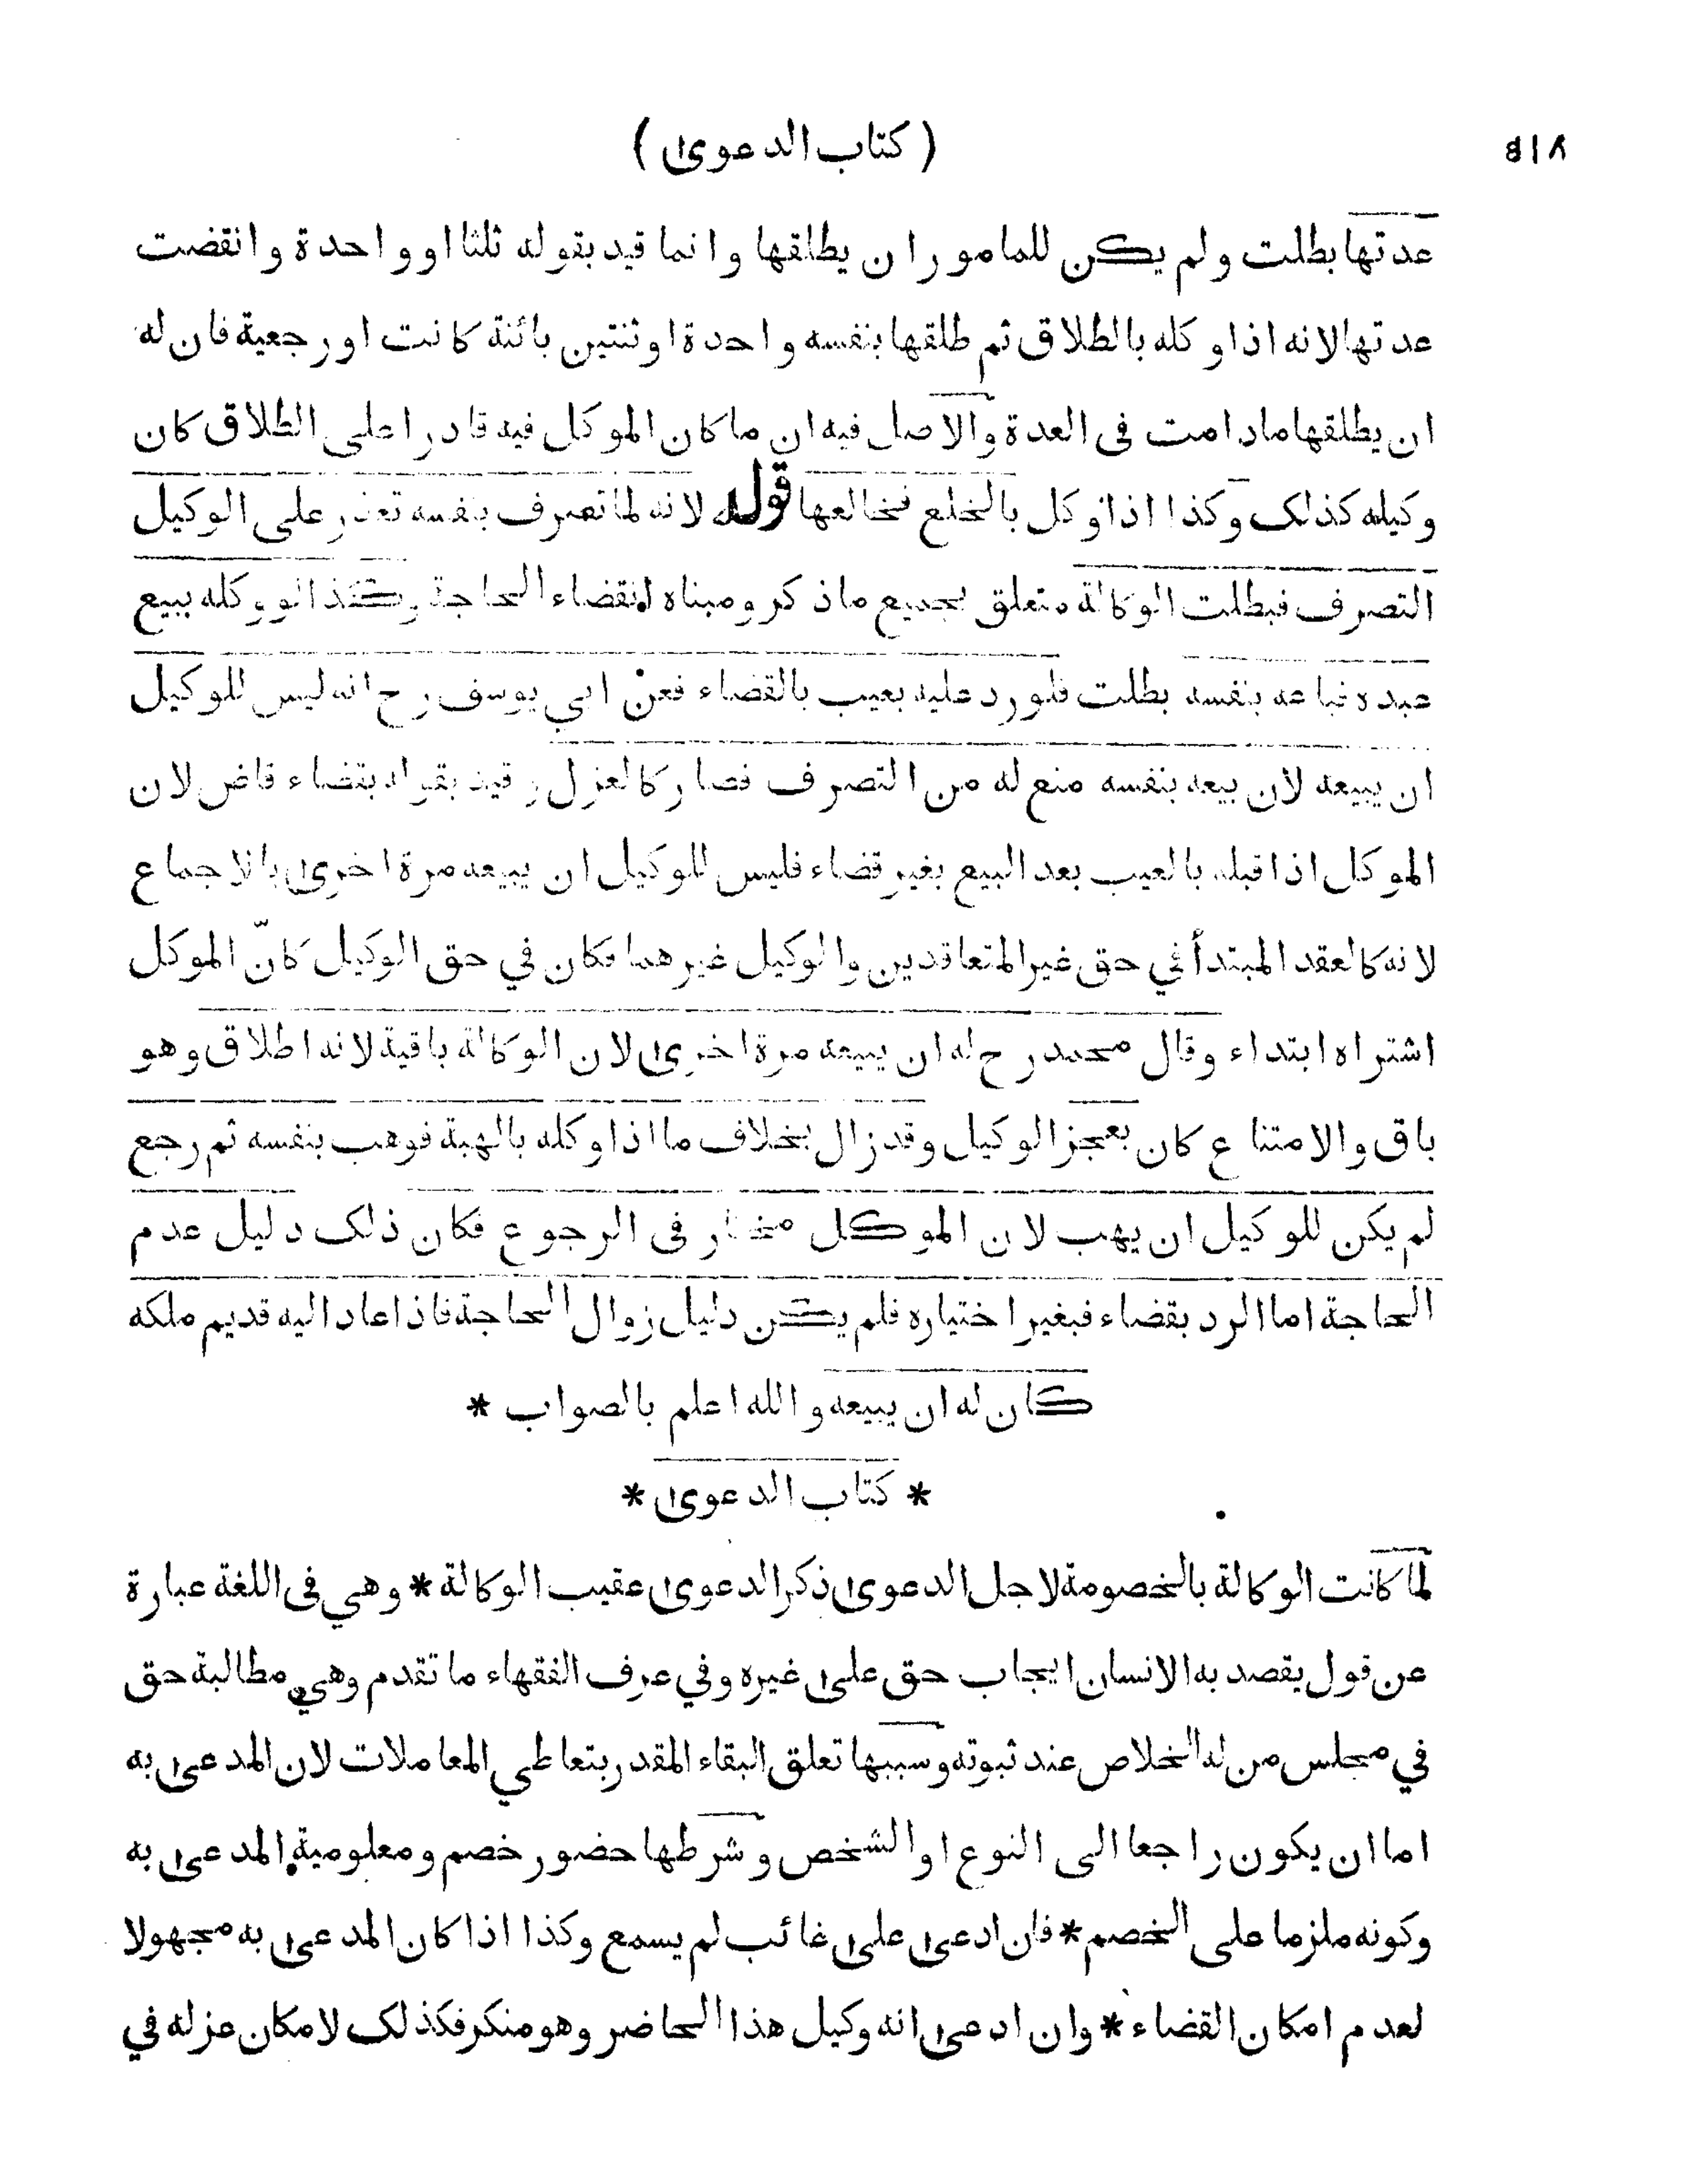 ( كتاب الدعوى )
عدتها بطلت ولم يكن للمامور ان يطلقها وانما قيد بقوله ثلثا او واحدة وانقضت
عدتها لانه اذا وكله بالطلاق ثم طلقها بنفسه واحدة او ثنتين بائنة كانت او رجعية فان له
ان يطلقها ما دامت فى العدة والاصل فيه ان ما كان الموكل فيه قادرا على الطلاق كان
وكيله كذلك وكذا اذا وكل بالخلع فخالعها قوله لانه لما تصرف بنفسه تعذر على الوكيل
التصرف فبطلت الوكالة متعلق بجميع ما ذكر ومبناه انقضاء الحاجة وكذا لو وكله ببيع
عبده فباعه بنفسه بطلت فلو رد عليه بعيب بالقضاء فعن ابي يوسف رح انه ليس للوكيل
ان يبيعه لان بيعه بنفسه منع له من التصرف فصار كالعزل وقيد بقوله بقضاء قاض لان
الموكل اذا قبله بالعيب بعد البيع بغير قضاء فليس للوكيل ان يبيعه مرة اخرى بالاجماع
لانه كالعقد المبتدأ في حق غير المتعاقدين والوكيل غيرهما فكان في حق الوكيل كانّ الموكل
اشتراه ابتداء وقال محمد رح له ان يبيعه مرة اخرى لان الوكالة باقية لانه اطلاق وهو
باق والامتناع كان بعجز الوكيل وقد زال بخلاف ما اذا وكله بالهبة فوهب بنفسه ثم رجع
لم يكن للوكيل ان يهب لان الموكل مختار فى الرجوع فكان ذلك دليل عدم
الحاجة اما الرد بقضاء فبغير اختياره فلم يكن دليل زوال الحاجة فاذا عاد اليه قديم ملكه
كان له ان يبيعه والله اعلم بالصواب *
* كتاب الدعوى *
لما كانت الوكالة بالخصومة لاجل الدعوى ذكر الدعوى عقيب الوكالة * وهي فى اللغة عبارة
عن قول يقصد به الانسان ايجاب حق على غيره وفي عرف الفقهاء ما تقدم وهي مطالبة حق
في مجلس من له الخلاص عند ثبوته وسببها تعلق البقاء المقدر بتعاطي المعاملات لان المدعى به
اما ان يكون راجعا الى النوع او الشخص وشرطها حضور خصم ومعلومية المدعى به
وكونه ملزما على الخصم * فان ادعى على غائب لم يسمع وكذا اذا كان المدعى به مجهولا
لعدم امكان القضاء * وان ادعى انه وكيل هذا الحاضر وهو منكر فكذلك لامكان عزله في